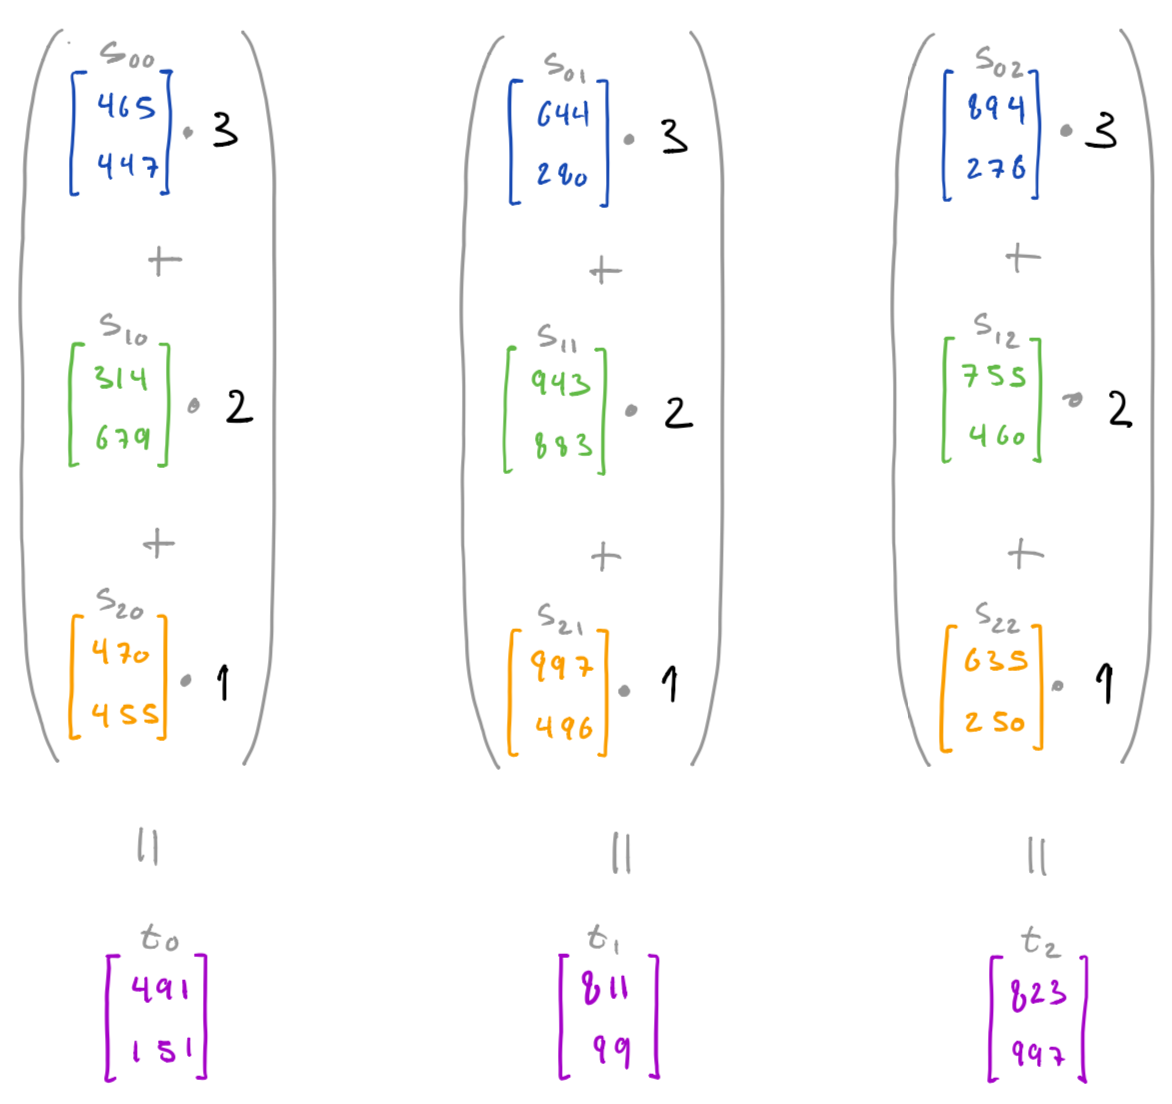 s00
465 · 3
447
+
s10
314 · 2
679
+
s20
470 · 1
455
=
t0
491
151
s01
644 · 3
280
+
s11
943 · 2
883
+
s21
997 · 1
496
=
t1
811
99
s02
894 · 3
276
+
s12
755 · 2
460
+
s22
635 · 1
250
=
t2
823
997